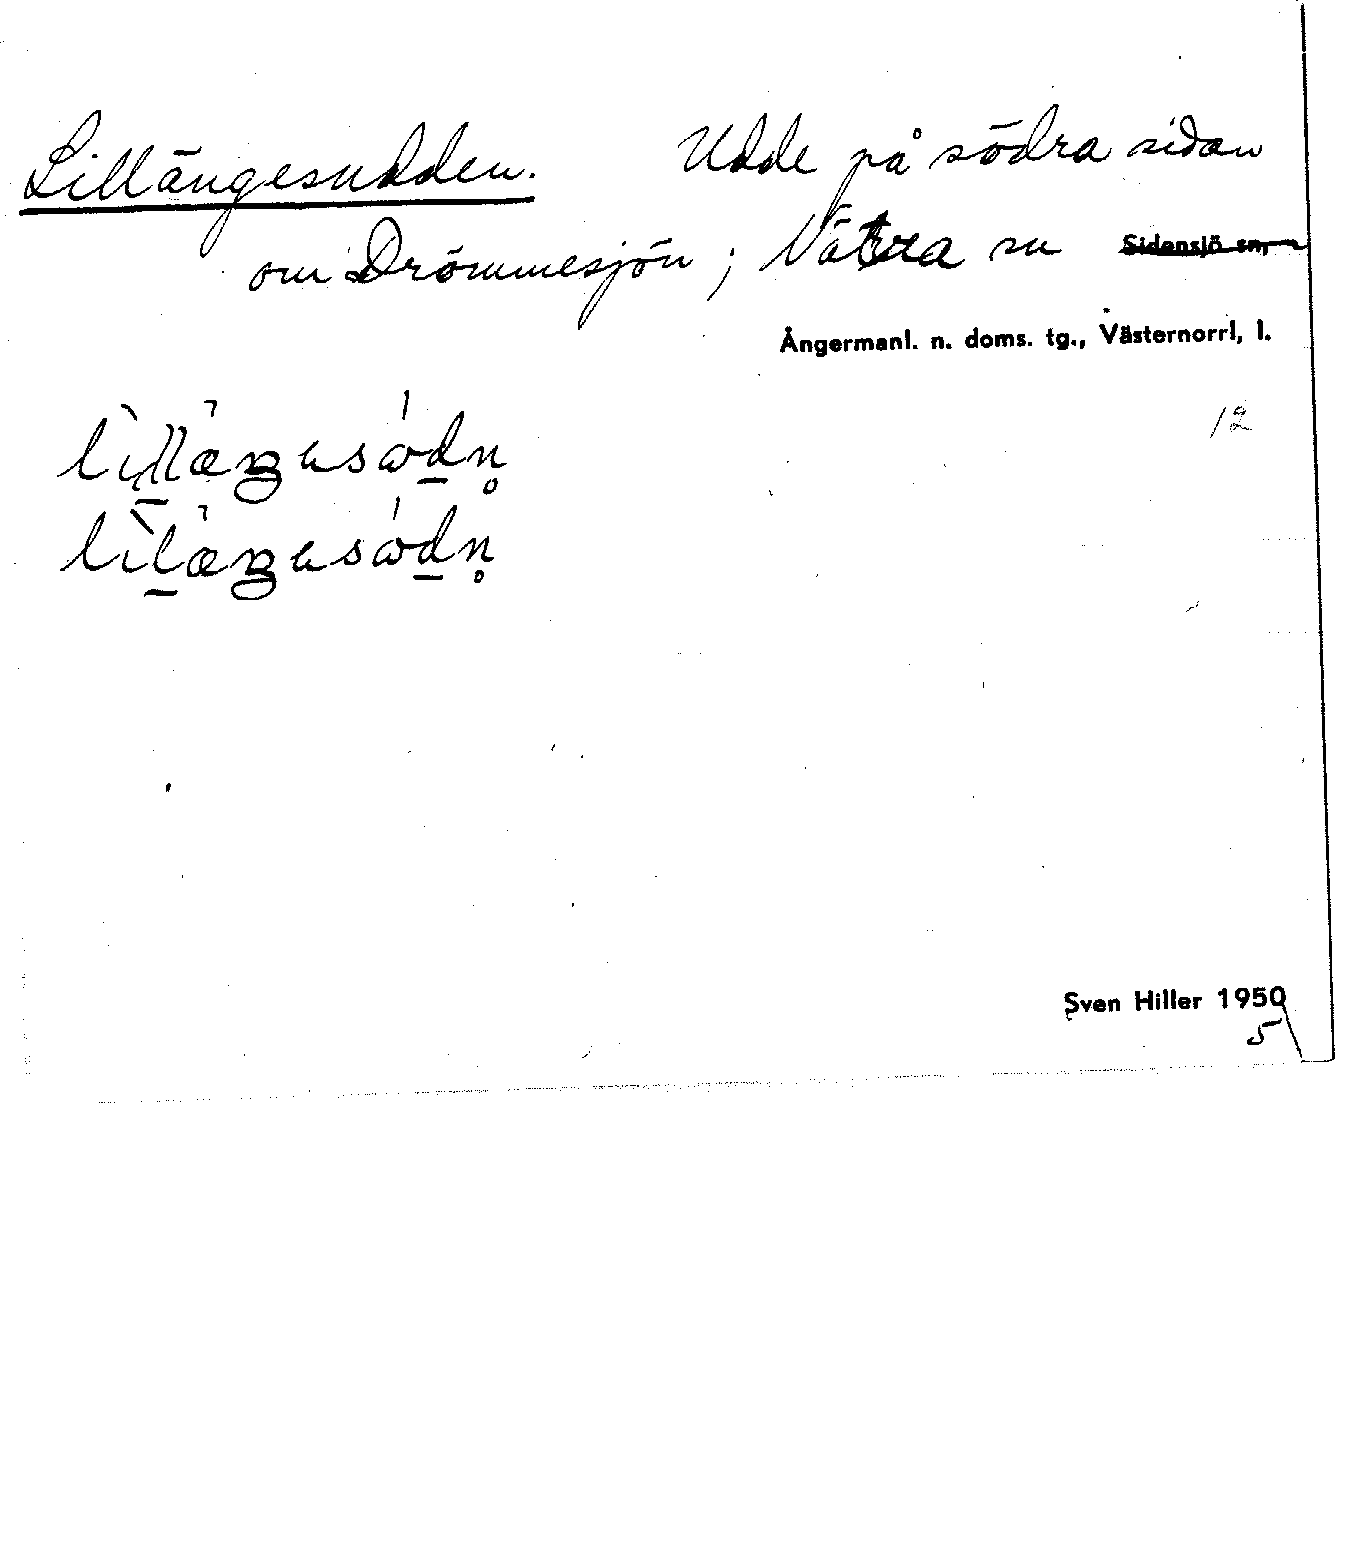 Lillängesudden. Udde på södra sidan
om Drömmesjön; Nätra sn Sidensjö sn,
Ångermanl. n. doms. tg., Västernorrl, l.
12
Sven Hiller 1950
5